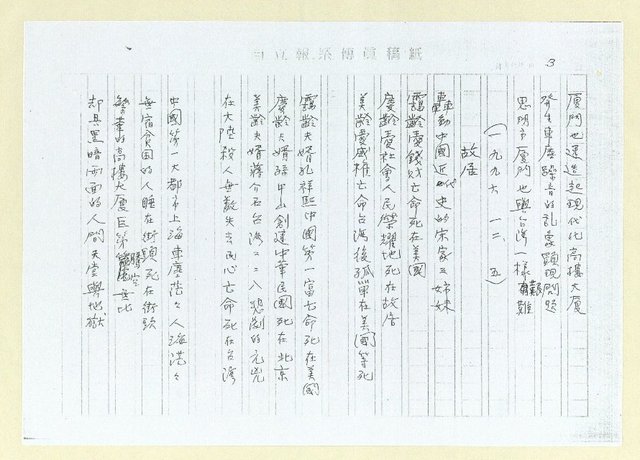 自立報系傳真稿紙
3
廈門也建造起現代化高樓大廈
發生車塵躁音的亂象顯現問題
思明市廈門也與台灣一樣艱難
(一九九六 一二、五)
故居
轟動中國近代史的宋家三姊妹
靄齡愛錢財亡命死在美國
慶齡愛社會人民榮耀地死在故居
美齡愛威權亡命台灣後孤單在美國等死
靄齡夫婿孔祥熙中國第一富亡命死在美國
慶齡夫婿孫中山創建中華民國死在北京
美齡夫婿蔣介石台灣二二八悲劇的元兇
在大陸殺人無數失去民心亡命死在台灣
中國第一大都市上海車塵陣々人海茫々
無宿貧困的人睡在街頭死在街頭
繁華的高樓大廈巨第無比
却具黑暗兩面的人間天堂與地獄